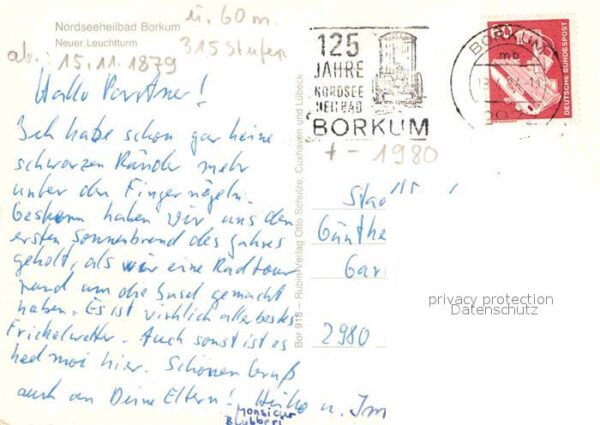 Nordseeheilbad Borkum
Neuer Leuchtturm
u. 60 m.
315 Stufen
ab: 15.11.1879
Hallo Partner!
Ich habe schon gar keine
schwarzen Ränder mehr
unter den Fingernägeln.
Gestern haben wir uns den
ersten Sonnenbrand des Jahres
geholt, als wir eine Radtour
rund um die Insel gemacht
haben. Es ist wirklich allerbestes
Frickelwetter. Auch sonst ist es
hier. Schönen Gruß
auch an Deine Eltern! Heiko u.
Monsieur
Blubberi
Bor 918 – Rubin-Verlag Otto Schütze, Cuxhaven und Lübeck
125
JAHRE
NORDSEE
HEILBAD
BORKUM
+ - 1980
BORKUM
mb
60
DEUTSCHE BUNDESPOST
2980
privacy protection
Datenschutz